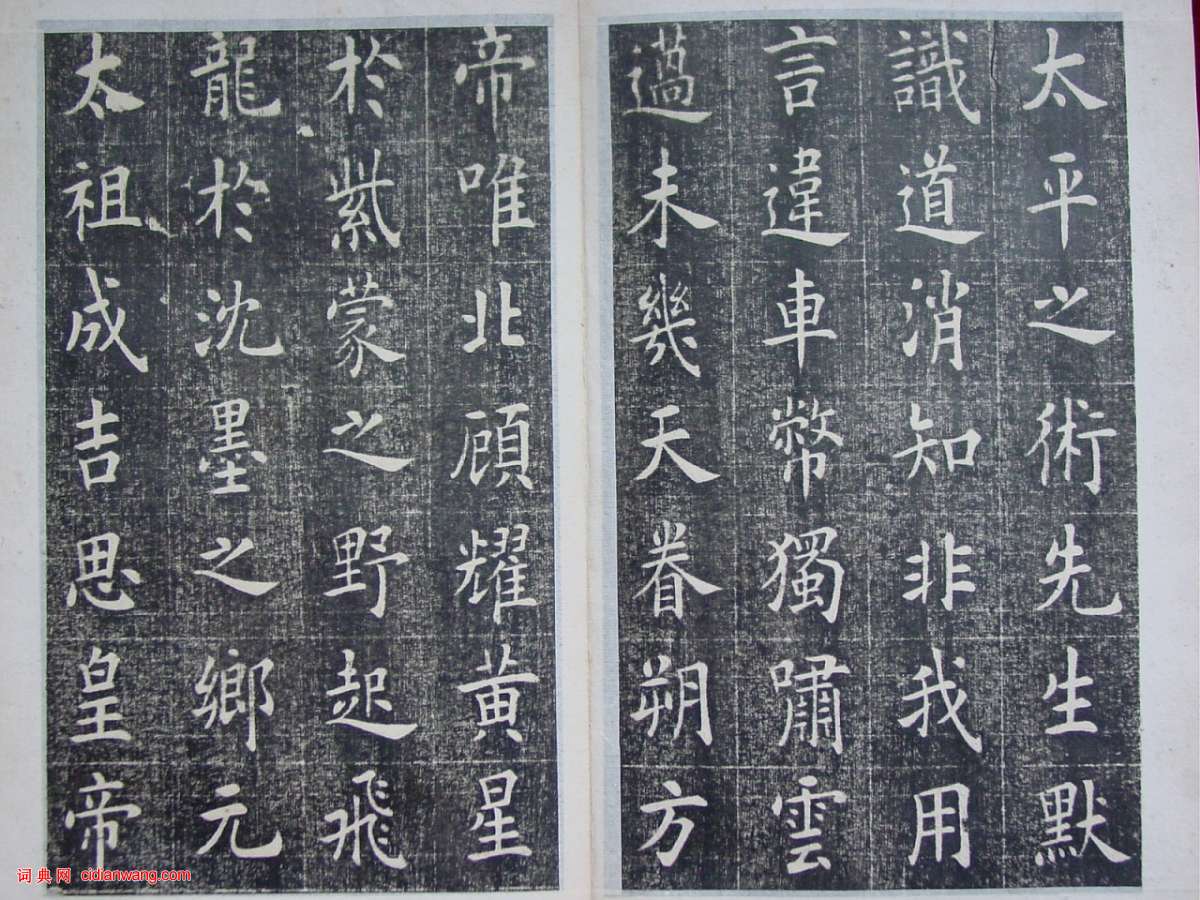 太平之術先生默
識道消知非我用
言違車幣獨嘯雲
薖未幾天眷朔方
帝唯北顧耀黄星
於紫蒙之野起飛
龍於沈墨之鄉元
太祖成吉思皇帝
词典网 cidianwang.com